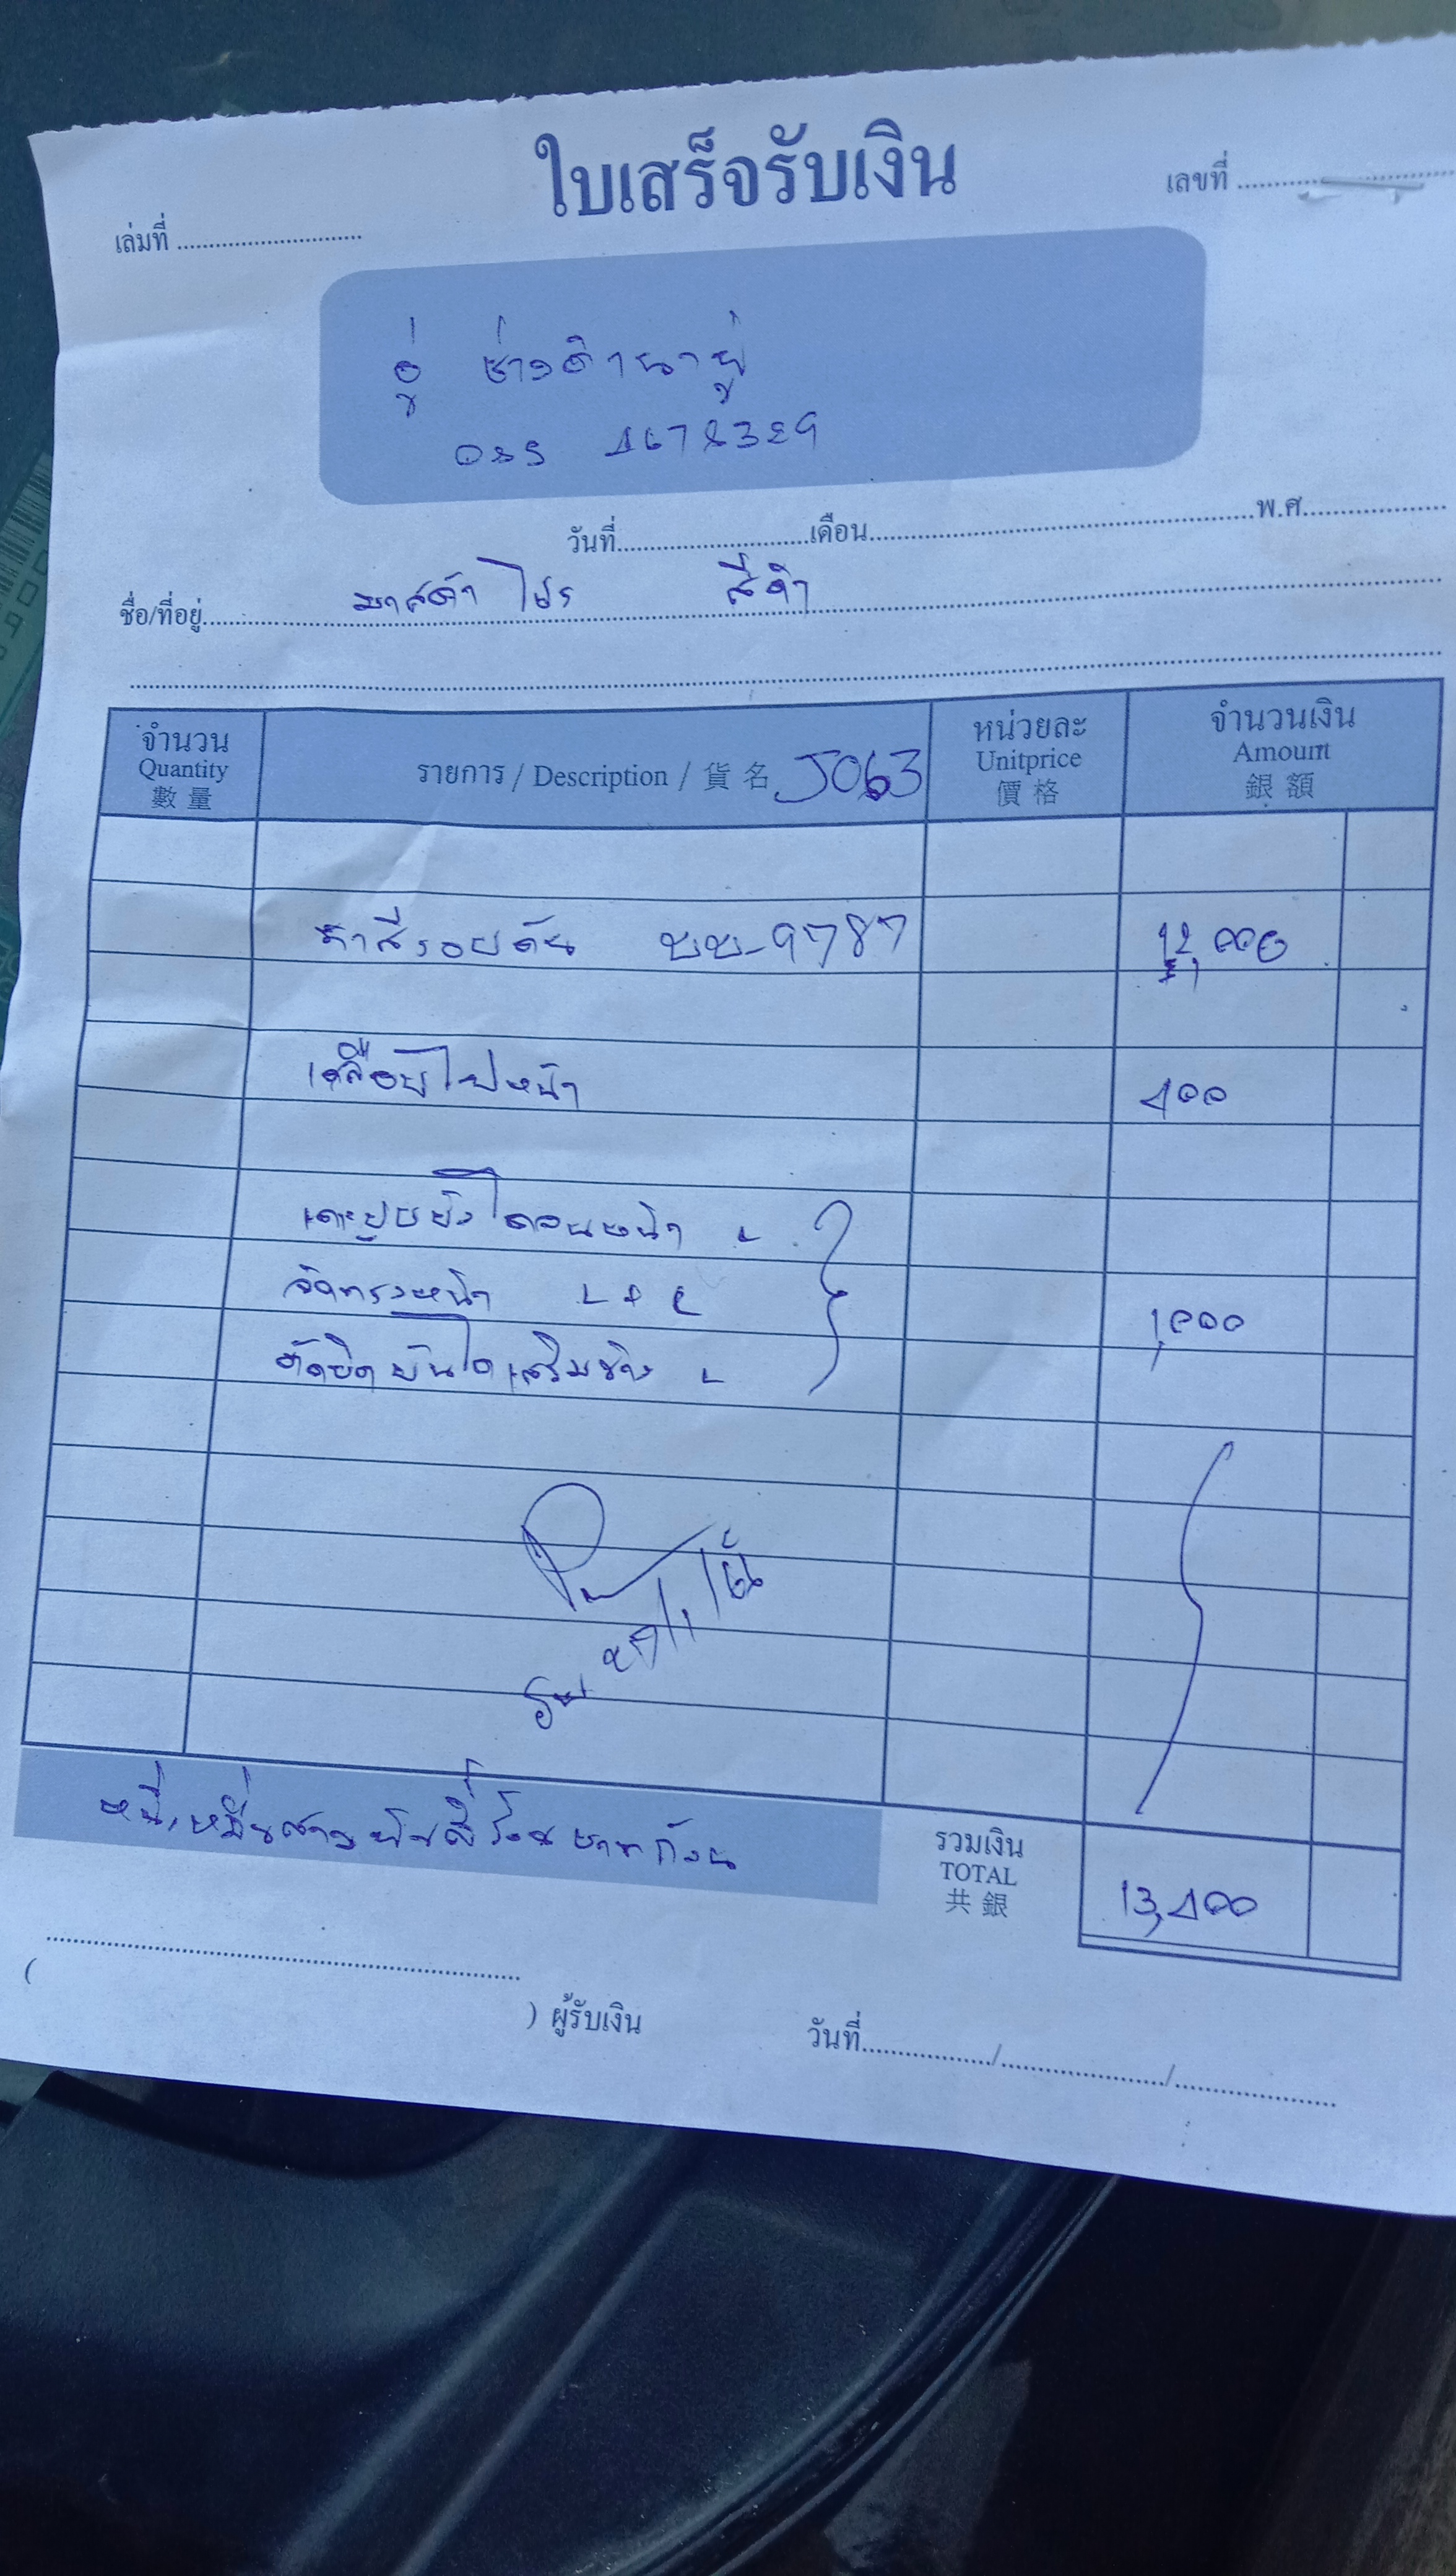 ใบเสร็จรับเงิน
เล่มที่
เลขที่
อู่ ช่างดำนาปู่
วันที่ เดือน พ.ศ.
ชื่อ/ที่อยู่ มาสด้า โปร สีดำ
จำนวน
Quantity
數量
รายการ / Description / 貨名 J063
หน่วยละ
Unitprice
價格
จำนวนเงิน
Amount
銀額
ทำสีรอบคัน บบ-9787 12,000
เคลือบไฟหน้า 400
เคาะปูยันไดตอนหน้า L
จัดทรงหน้า L+R 1,000
ตัดยึดบันไดเสริมข้าง L
หนึ่งหมื่นสามพันสี่ร้อยบาทถ้วน
รวมเงิน
TOTAL
共銀
13,400
( ) ผู้รับเงิน
วันที่ / /